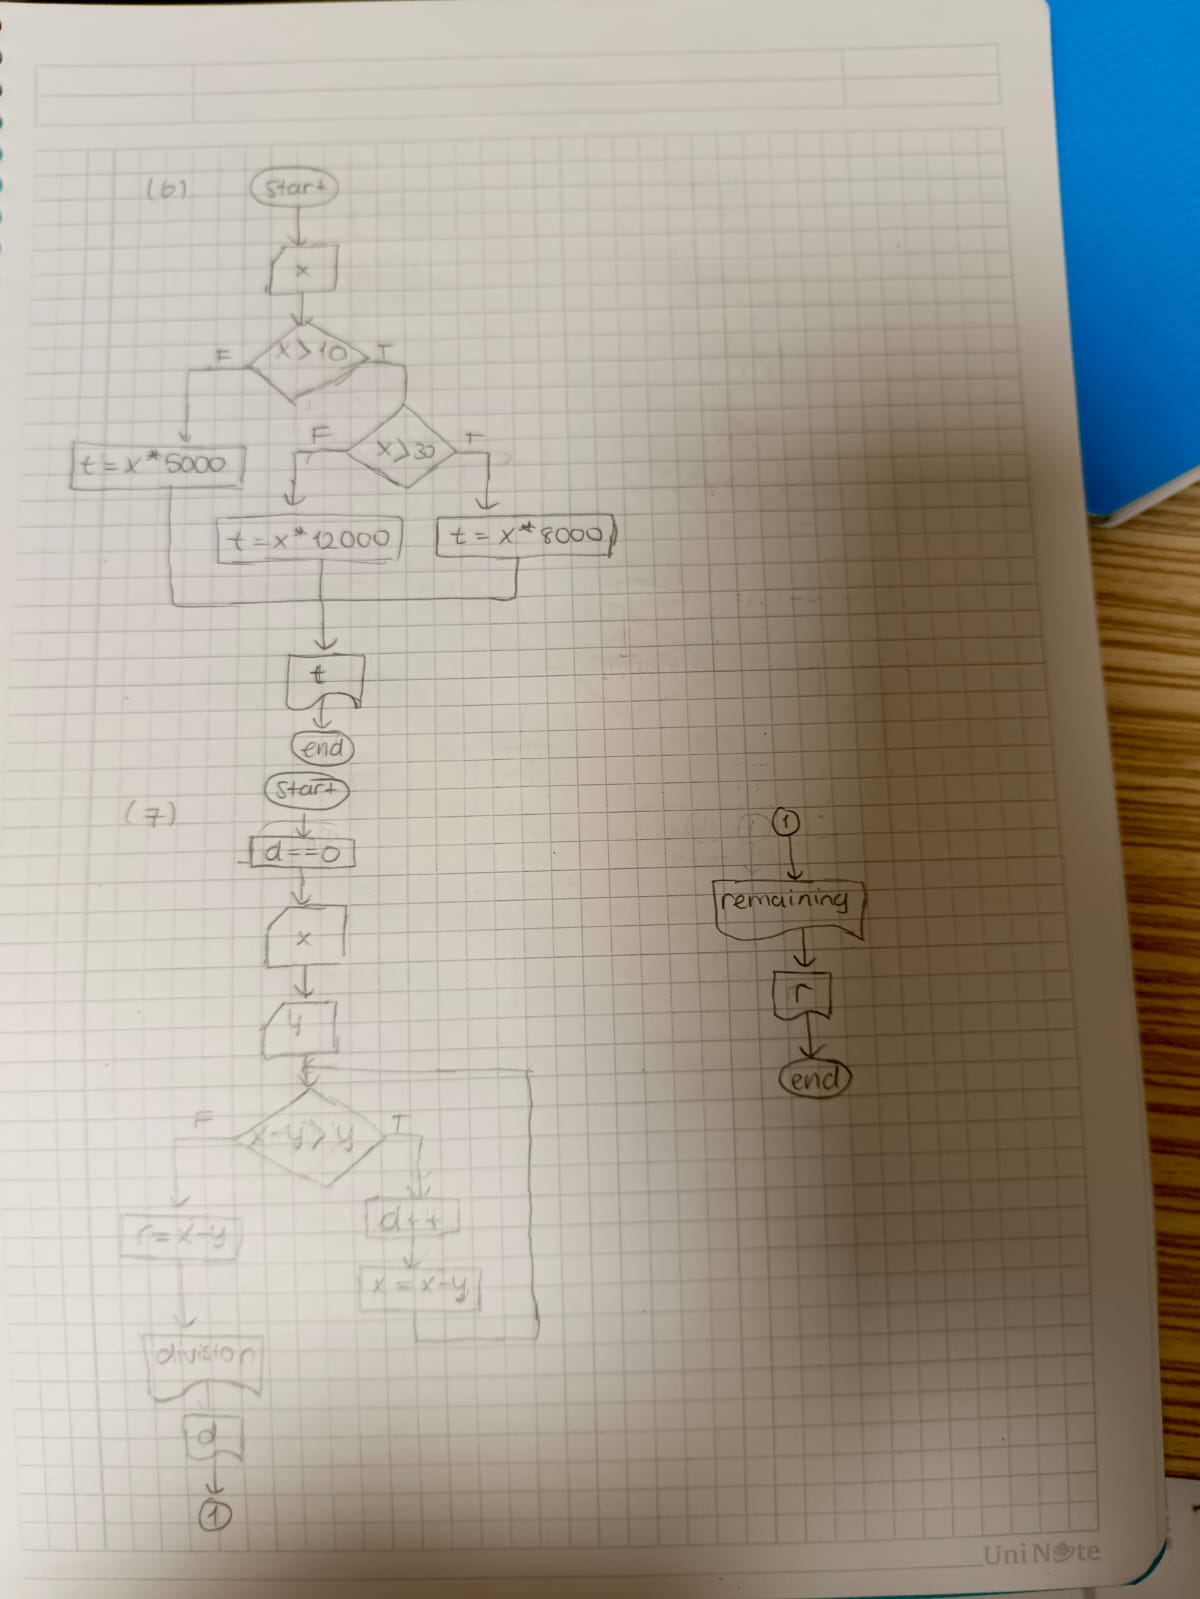 (6)
start
x
F x>10 T
F x>30 T
t=x*5000
t=x*12000
t=x*8000
t
end
(7)
start
d==0
x
y
F x-y>y T
r=x-y
d++
x=x-y
division
d
1
1
remaining
r
end
UniNote